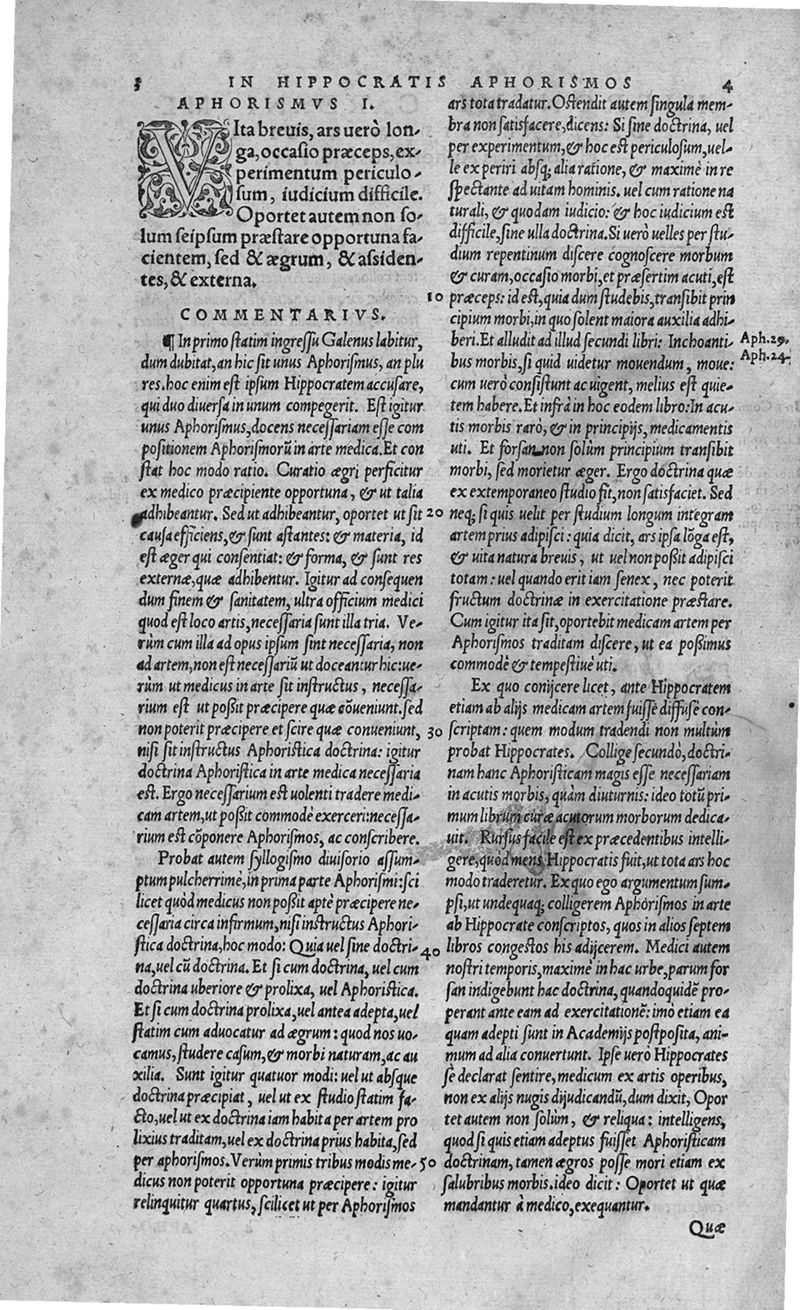 3 IN HIPPOCRATIS APHORISMOS 4
APHORISMVS I.
VIta breuis, ars uerò lon-
ga, occasio præceps, ex-
perimentum periculo-
sum, iudicium difficile.
Oportet autem non so-
lum seipsum præstare opportuna fa-
cientem, sed & ægrum, & assiden-
tes, & externa.
COMMENTARIVS.
¶ In primo statim ingressu Galenus labitur,
dum dubitat, an hic sit unus Aphorismus, an plu
res. hoc enim est ipsum Hippocratem accusare,
qui duo diuersa in unum compegerit. Est igitur
unus Aphorismus, docens necessariam esse com
positionem Aphorismorũ in arte medica. Et con
stat hoc modo ratio. Curatio ægri perficitur
ex medico præcipiente opportuna, & ut talia
adhibeantur. Sed ut adhibeantur, oportet ut sit
causa efficiens, & sunt astantes: & materia, id
est æger qui consentiat: & forma, & sunt res
externæ, quæ adhibentur. Igitur ad consequen
dum finem & sanitatem, ultra officium medici
quod est loco artis, necessaria sunt illa tria. Ve-
rùm cum illa ad opus ipsum sint necessaria, non
ad artem, non est necessariũ ut doceantur hic: ue-
rùm ut medicus in arte sit instructus, necessa-
rium est ut possit præcipere quæ cõueniunt. sed
non poterit præcipere et scire quæ conueniunt,
nisi sit instructus Aphoristica doctrina: igitur
doctrina Aphoristica in arte medica necessaria
est. Ergo necessarium est uolenti tradere medi-
cam artem, ut possit commodè exerceri: necessa-
rium est cõponere Aphorismos, ac conscribere.
Probat autem syllogismo diuisorio assum-
ptum pulcherrimè, in prima parte Aphorismi: sci
licet quòd medicus non possit aptè præcipere ne-
cessaria circa infirmum, nisi instructus Aphori-
stica doctrina, hoc modo: Quia uel sine doctri-
na, uel cũ doctrina. Et si cum doctrina, uel cum
doctrina uberiore & prolixa, uel Aphoristica.
Et si cum doctrina prolixa, uel antea adepta, uel
statim cum aduocatur ad ægrum: quod nos uo-
camus, studere casum, & morbi naturam, ac au
xilia. Sunt igitur quatuor modi: uel ut absque
doctrina præcipiat, uel ut ex studio statim fa-
cto, uel ut ex doctrina iam habita per artem pro
lixius traditam, uel ex doctrina prius habita, sed
per aphorismos. Verùm primis tribus modis me-
dicus non poterit opportuna præcipere: igitur
relinquitur quartus, scilicet ut per Aphorismos
10
20
30
40
50
ars tota tradatur. Ostendit autem singula mem-
bra non satisfacere, dicens: Si sine doctrina, uel
per experimentum, & hoc est periculosum, uel-
le experiri absq; alia ratione, & maximè in re
spectante ad uitam hominis. uel cum ratione na
turali, & quodam iudicio: & hoc iudicium est
difficile, sine ulla doctrina. Si uerò uelles per stu-
dium repentinum discere cognoscere morbum
& curam, occasio morbi, et præsertim acuti, est
præceps: id est, quia dum studebis, transibit prin
cipium morbi, in quo solent maiora auxilia adhi-
beri. Et alludit ad illud secundi libri: Inchoanti-
bus morbis, si quid uidetur mouendum, moue:
cum uerò consistunt ac uigent, melius est quie-
tem habere. Et infrà in hoc eodem libro: In acu-
tis morbis rarò, & in principijs, medicamentis
uti. Et forsan non solùm principium transibit
morbi, sed morietur æger. Ergo doctrina quæ
ex extemporaneo studio fit, non satisfaciet. Sed
neq; si quis uelit per studium longum integram
artem prius adipisci: quia dicit, ars ipsa lõga est,
& uita natura breuis, ut uel non possit adipisci
totam: uel quando erit iam senex, nec poterit
fructum doctrinæ in exercitatione præstare.
Cum igitur ita sit, oportebit medicam artem per
Aphorismos traditam discere, ut ea possimus
commodè & tempestiuè uti.
Ex quo conijcere licet, ante Hippocratem
etiam ab alijs medicam artem fuisse diffuse con-
scriptam: quem modum tradendi non multùm
probat Hippocrates. Collige secundò, doctri-
nam hanc Aphoristicam magis esse necessariam
in acutis morbis, quàm diuturnis: ideo totũ pri-
mum librum curæ acutorum morborum dedica-
uit. Rursus facile est ex præcedentibus intelli-
gere, quòd mens Hippocratis fuit, ut tota ars hoc
modo traderetur. Ex quo ego argumentum sum-
psi, ut undequaq; colligerem Aphorismos in arte
ab Hippocrate conscriptos, quos in alios septem
libros congestos his adijcerem. Medici autem
nostri temporis, maximè in hac urbe, parum for
san indigebunt hac doctrina, quandoquidẽ pro-
perant ante eam ad exercitationẽ: imò etiam ea
quam adepti sunt in Academijs postposita, ani-
mum ad alia conuertunt. Ipse uerò Hippocrates
se declarat sentire, medicum ex artis operibus,
non ex alijs nugis dijudicandũ, dum dixit, Opor
tet autem non solùm, & reliqua: intelligens,
quod si quis etiam adeptus fuisset Aphoristicam
doctrinam, tamen ægros posse mori etiam ex
salubribus morbis. ideo dicit: Oportet ut quæ
mandantur à medico, exequantur.
Aph.29.
Aph.24.
Quæ